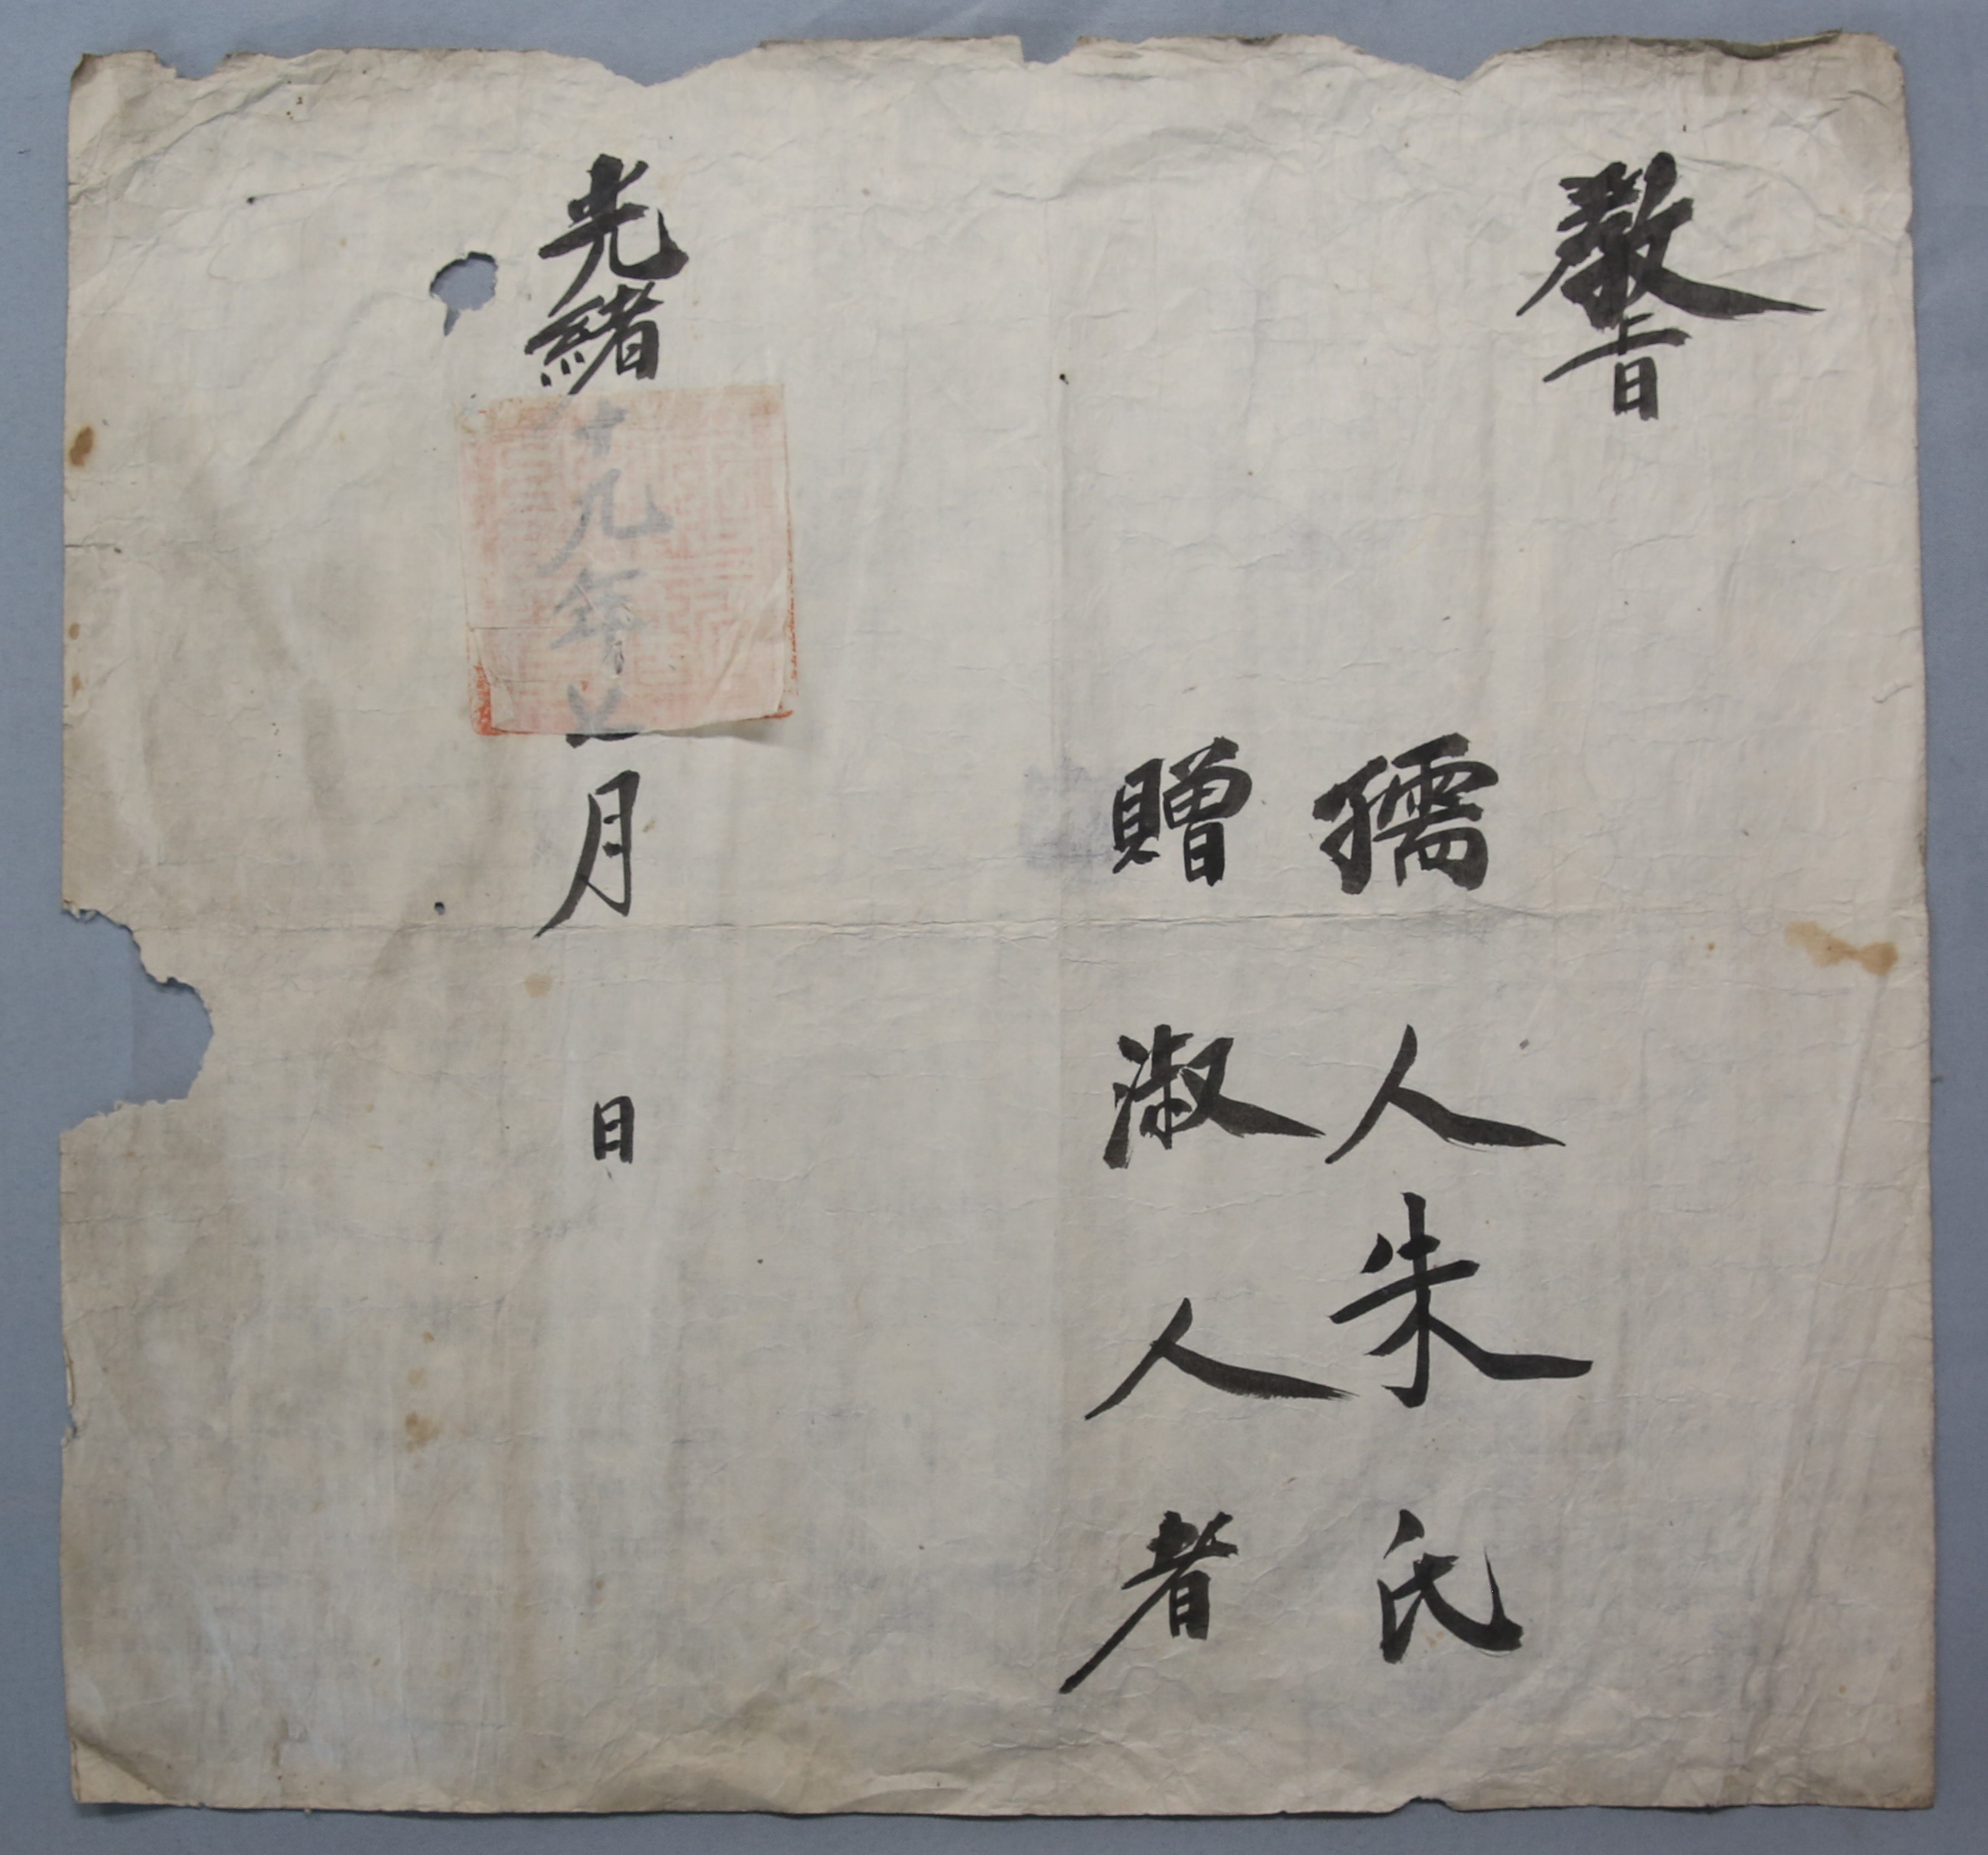 敎旨
孺人朱氏
贈淑人者
光緖十九年月 日